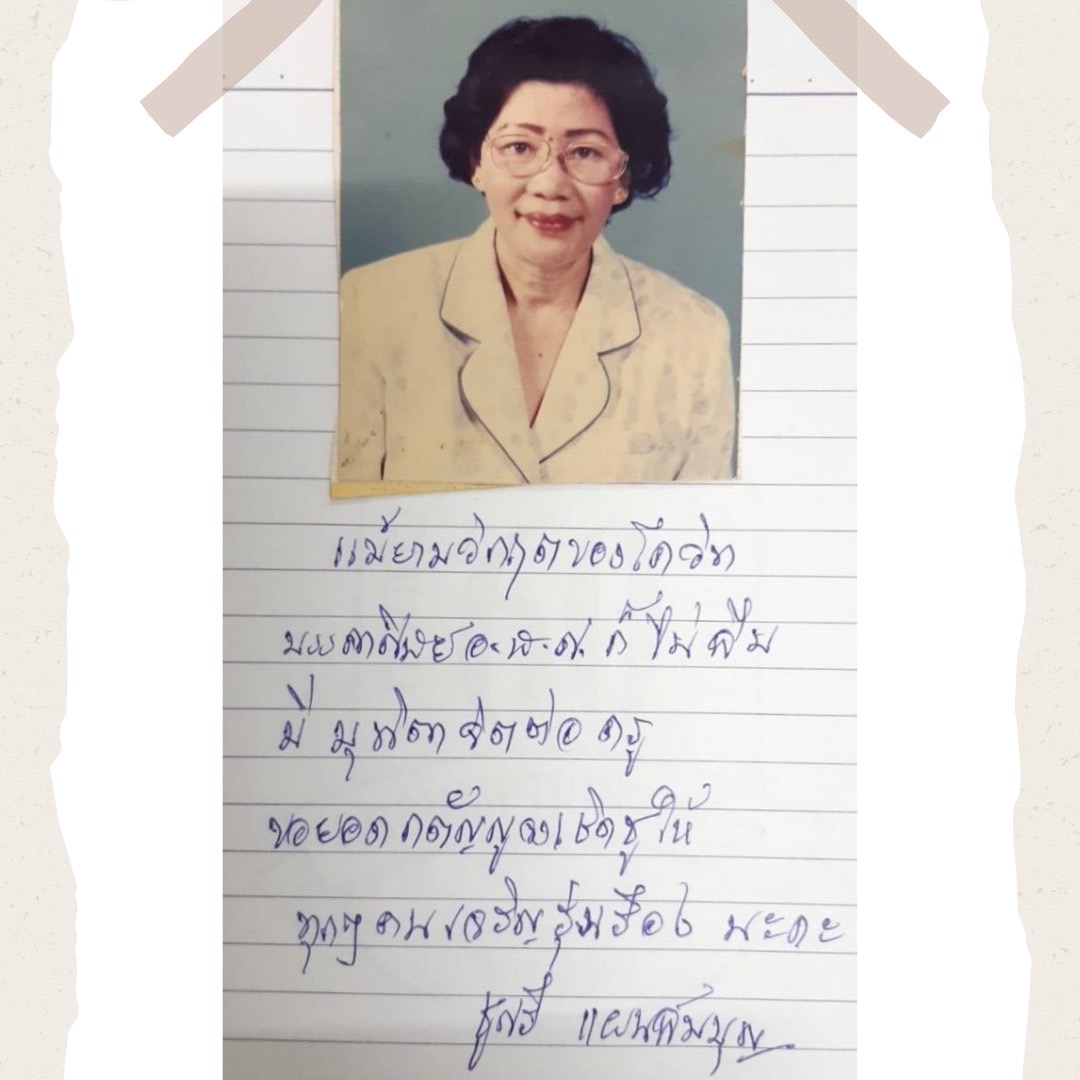 แม้ยามวิกฤตของโควิท
บรรดาศิษย์อ.ช.ศ. ก็ไม่ลืม
มีมุทิตาจิตต่อครู
ขอยอดกตัญญูจงเชิดชูให้
ทุกๆคนเจริญรุ่งเรือง นะคะ
ชูศรี แผนสมบุญ